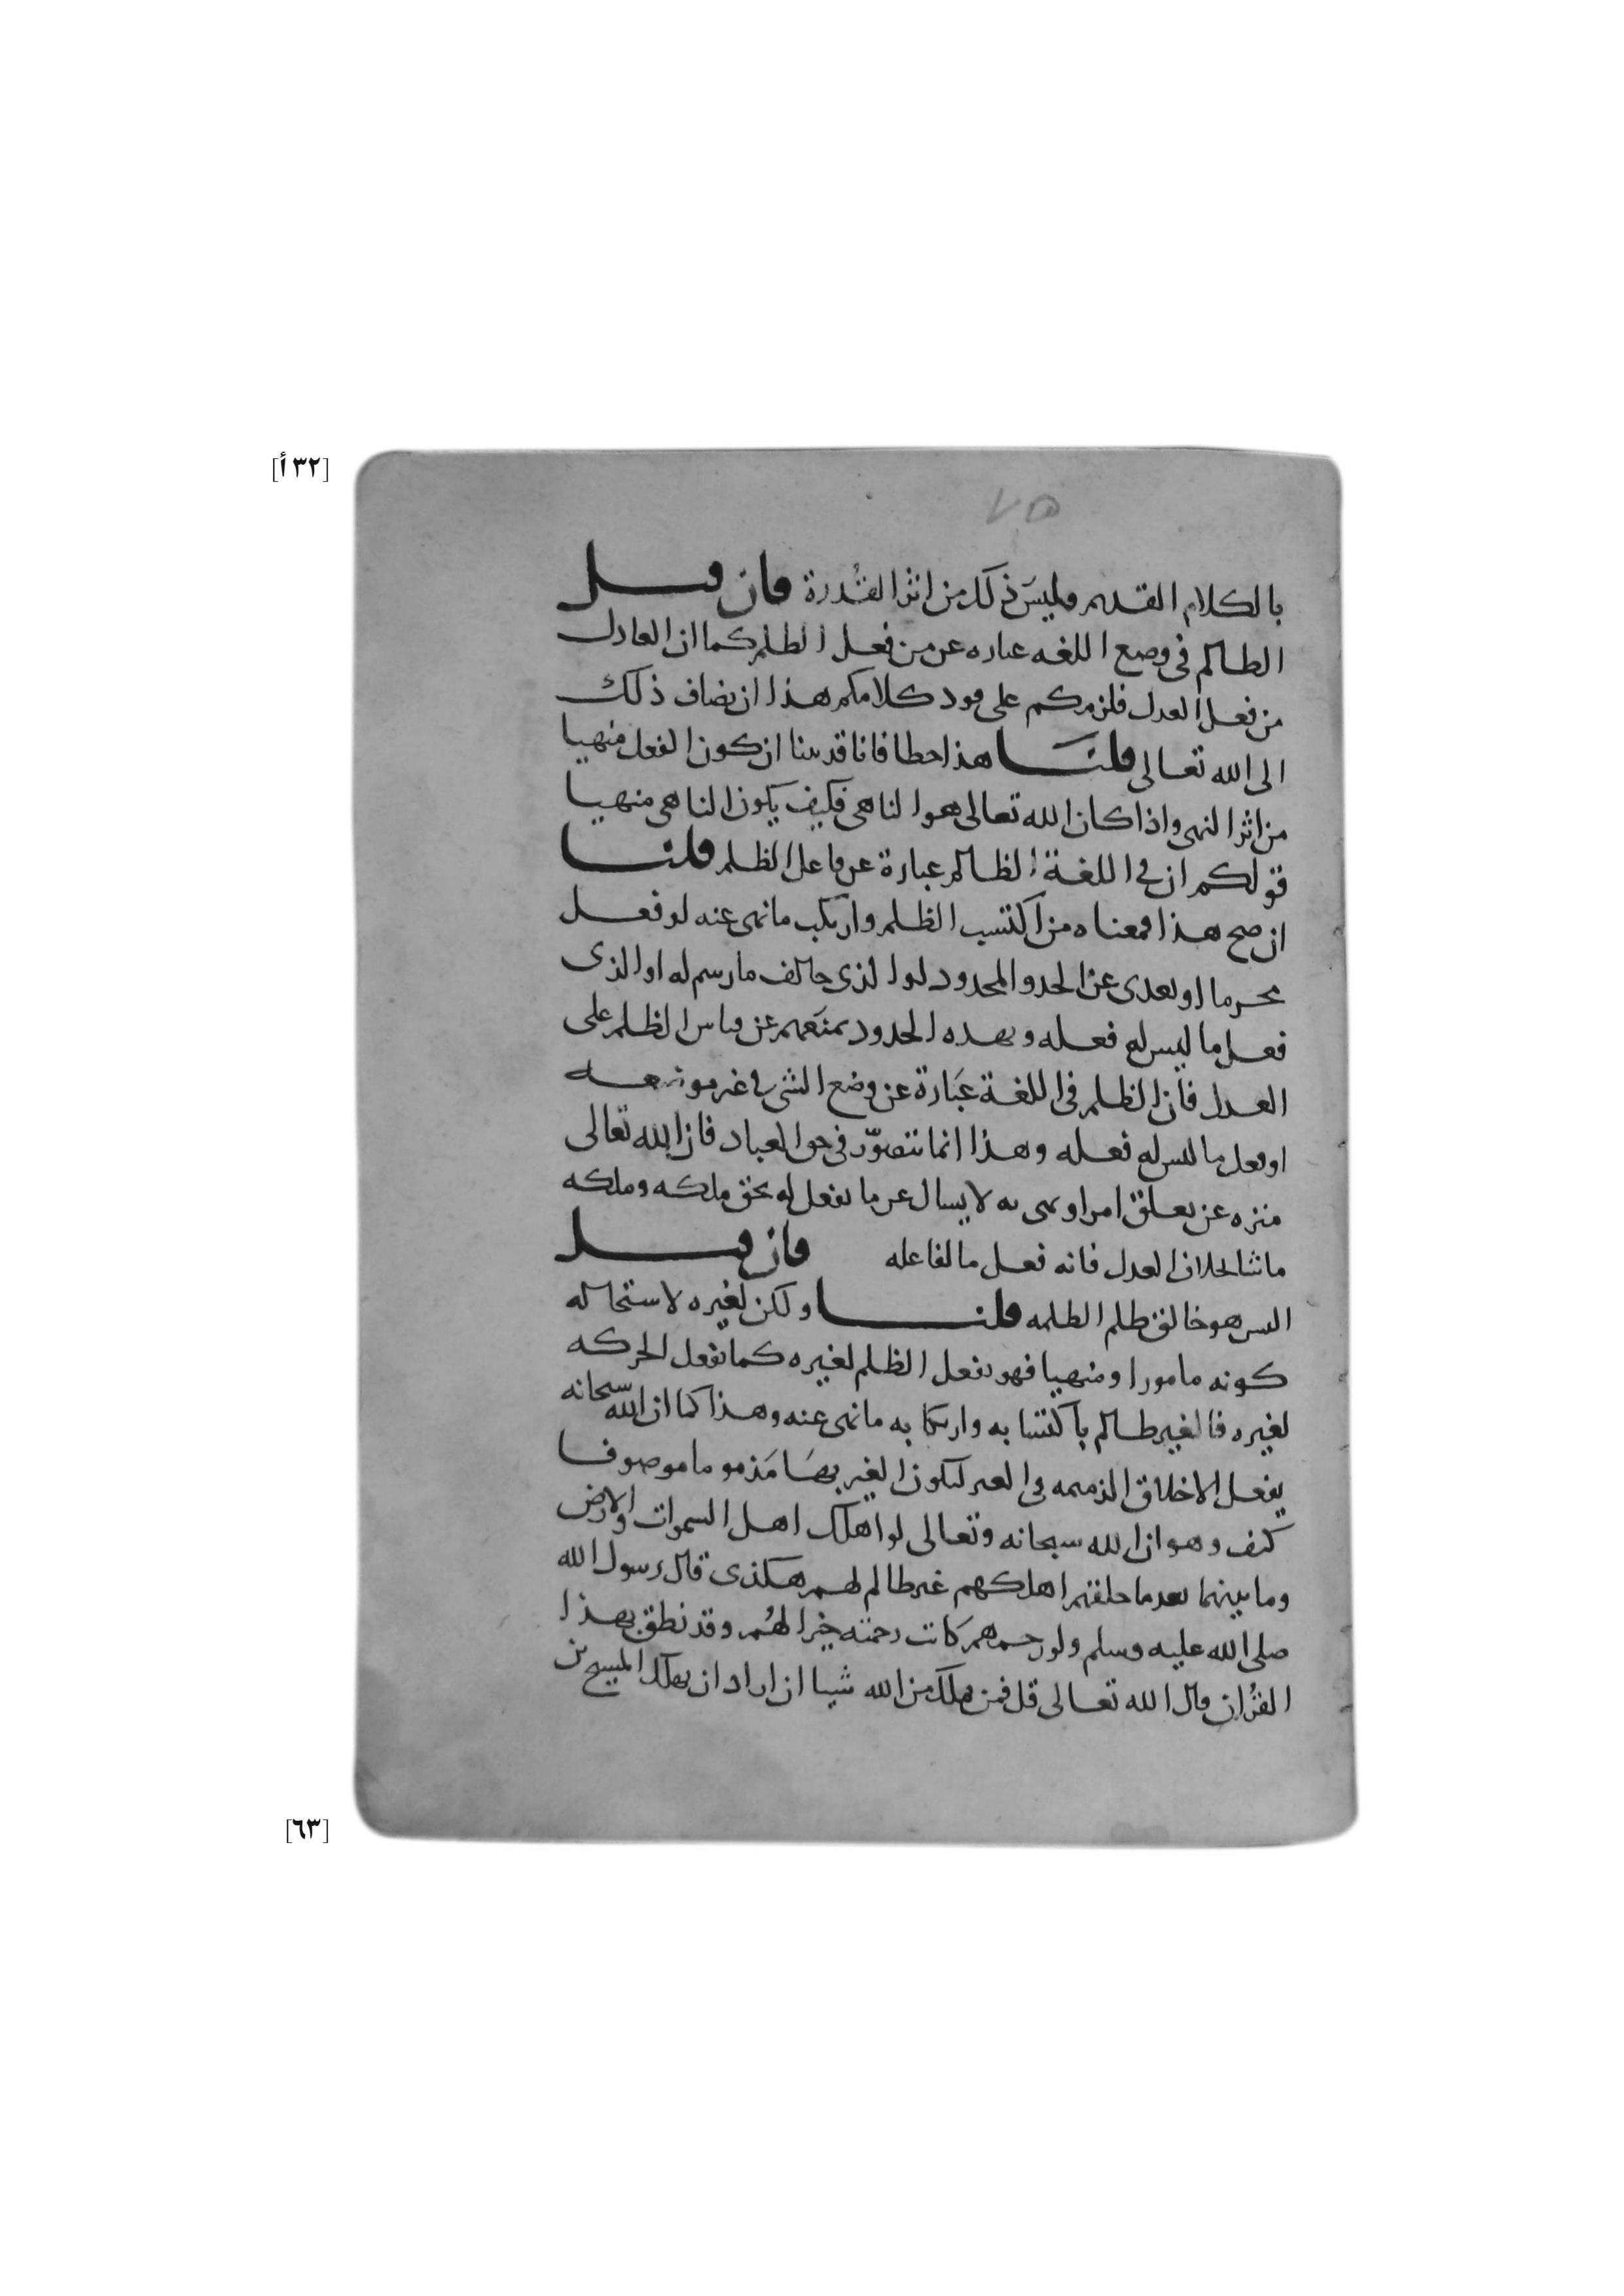 [٣٢ أ]
٧٥
بالكلام القديم وليس ذلك من اثر القدرة فان قيل
الظالم في وضع اللغه عباره عن من فعل الظلم كما ان العادل
من فعل العدل فلزمكم على قود كلامكم هذا ان يضاف ذلك
الى الله تعالى قلنا هذا خطا فانا قد بينا ان كون الفعل منهيا
من اثر النهى واذا كان الله تعالى هو الناهى فكيف يكون الناهى منهيا
قولكم ان في اللغة الظالم عبارة عن فاعل الظلم قلنا
ان صح هذا فمعناه من اكتسب الظلم وارتكب ما نهى عنه لو فعل
محرما او تعدى عن الحد والمحدود له او الذى خالف ما رسم له او الذى
فعل ما ليس له فعله وبهذه الحدود نمنعهم عن قياس الظلم على
العدل فان الظلم فى اللغة عبارة عن وضع الشى فى غير موضعه
او فعل ما ليس له فعله وهذا انما يتصور فى حق العباد فان الله تعالى
منزه عن تعلق امر او نهى به لا يسال عن ما يفعل له بحق ملكه وملكه
ما شا بخلاف العدل فانه فعل ما لفاعله فان قيل
اليس هو خالق ظلم الظلمه قلنا ولكن لغيره لاستحاله
كونه مامورا ومنهيا فهو يفعل الظلم لغيره كما يفعل الحركه
لغيره فالغير ظالم باكتسابه وارتكابه ما نهى عنه وهذا كما ان الله سبحانه
يفعل الاخلاق الذميمه فى الغير ليكون الغير بها مذموما موصوفا
كيف وهو ان الله سبحانه وتعالى لو اهلك اهل السموات والارض
وما بينهما بعد ما خلقهم اهلكهم غير ظالم لهم هكذى قال رسول الله
صلى الله عليه وسلم ولو رحمهم كانت رحمته خيرا لهم وقد نطق بهذا
القران قال الله تعالى قل فمن يملك من الله شيا ان اراد ان يهلك المسيح بن
[٦٣]